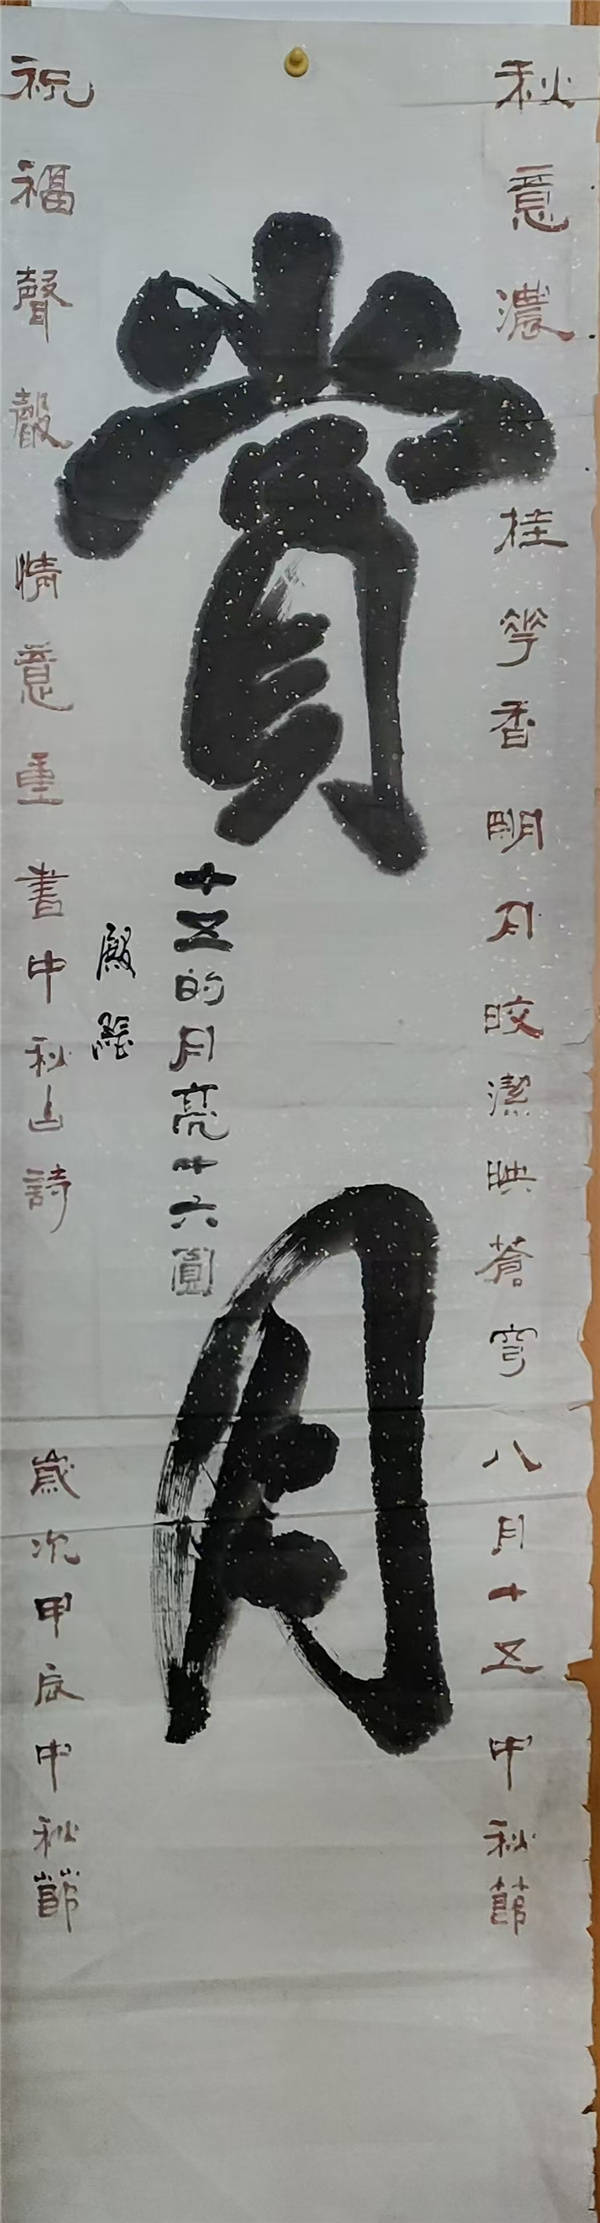 秋意濃 桂花香 明月皎潔映蒼穹 八月十五 中秋節
賞月
十五的月亮十六圓
殿
祝福聲聲 情意重 書中秋山詩 歲次甲辰中秋節